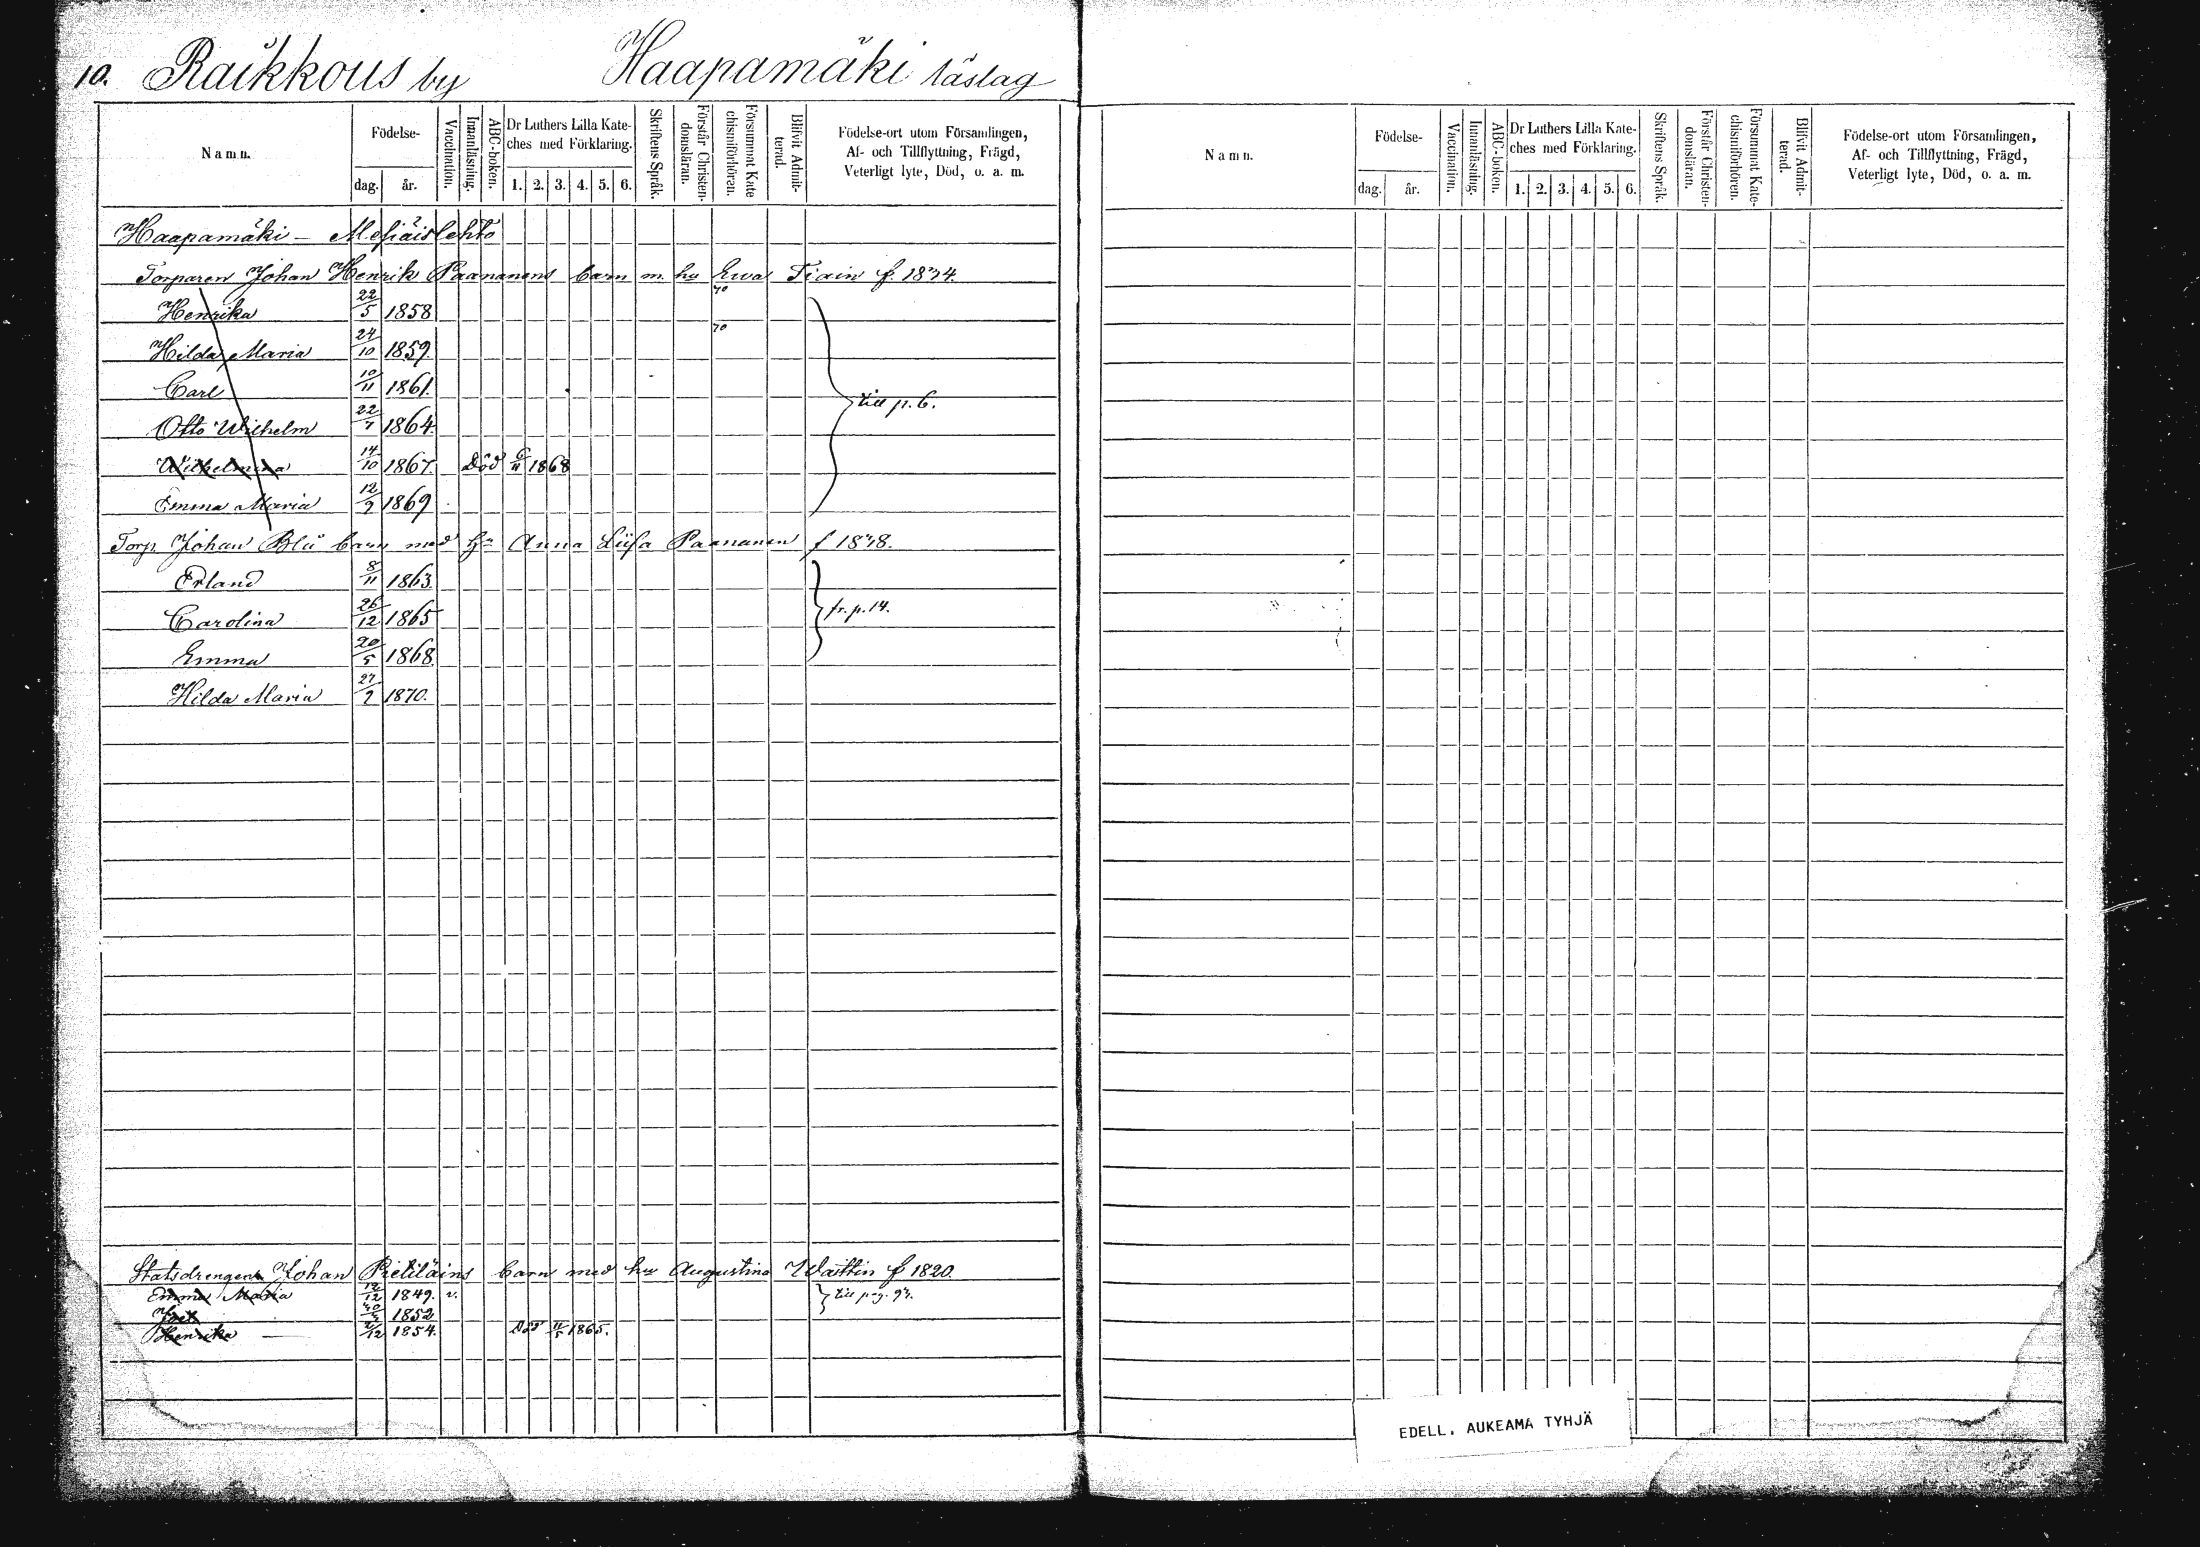 10. Raikkous by Haapamäki läslag
Namn.
Födelse-
dag.
år.
Vaccination.
Innanläsning.
ABC-boken.
Dr Luthers Lilla Kate-
ches med Förklaring.
1. 2. 3. 4. 5. 6.
Skriftens Språk.
Förstår Christen-
domsläran.
Försummat Kate
chismiförhören.
Blifvit Admit-
terad.
Födelse-ort utom Församlingen,
Af- och Tillflyttning, Frägd,
Veterligt lyte, Död, o. a. m.
Haapamäki – Mesiäislehto
Torparen Johan Henrik Paananens barn m. hu Ewa Tiain f. 1834.
Henrika 22/5 1858 70
Hilda Maria 24/10 1859. 70
Carl 10/11 1861. till p. 6.
Otto Wilhelm 22/7 1864.
Wilhelmina 14/10 1867. Död 6/11 1868
Emma Maria 12/9 1869
Torp. Johan Blå barn med hu Anna Liisa Paananen f 1838.
Erland 8/11 1863.
Carolina 26/12 1865 fr. p. 14.
Emma 20/5 1868.
Hilda Maria 27/9 1870.
Statsdrengen Johan Pietiläins barn med hu Augustina Waittin f 1820.
Emma Maria 12/12 1849. v. till pag. 93.
Joel 1852
Henrika 2/12 1854. Död 11/5 1865.
Namn.
Födelse-
dag.
år.
Vaccination.
Innanläsning.
ABC-boken.
Dr Luthers Lilla Kate-
ches med Förklaring.
1. 2. 3. 4. 5. 6.
Skriftens Språk.
Förstår Christen-
domsläran.
Försummat Kate-
chismiförhören.
Blifvit Admit-
terad.
Födelse-ort utom Församlingen,
Af- och Tillflyttning, Frägd,
Veterligt lyte, Död, o. a. m.
EDELL. AUKEAMA TYHJÄ